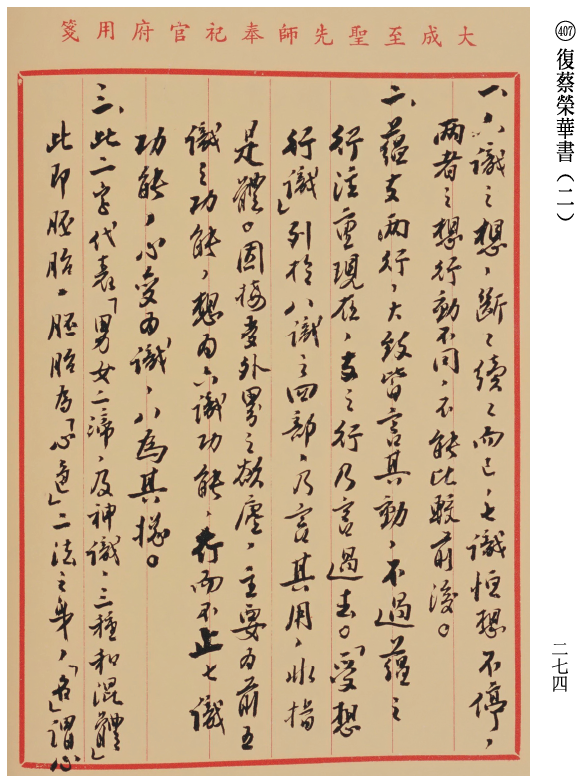 大成至聖先師奉祀官府用箋
一、六識之想，斷斷續續而已，七識恒想不停，
兩者之想行動不同，不能比較前後。
二、蘊支兩行，大致皆言其動，不過蘊之
行注重現在，支之行乃言過去。「受想
行識」列於八識之四部，乃言其用，非指
是體。因接老外界之欲塵，主要為前五
識之功能，想為六識功能，行而不止七識
功能，心變為識，八為其總。
三、此二字代表「男女二渧，及神識，三種和混體」
此即胚胎。胚胎為「心色」二法之身，「名」謂心
㊼復蔡榮華書（二）
二七四